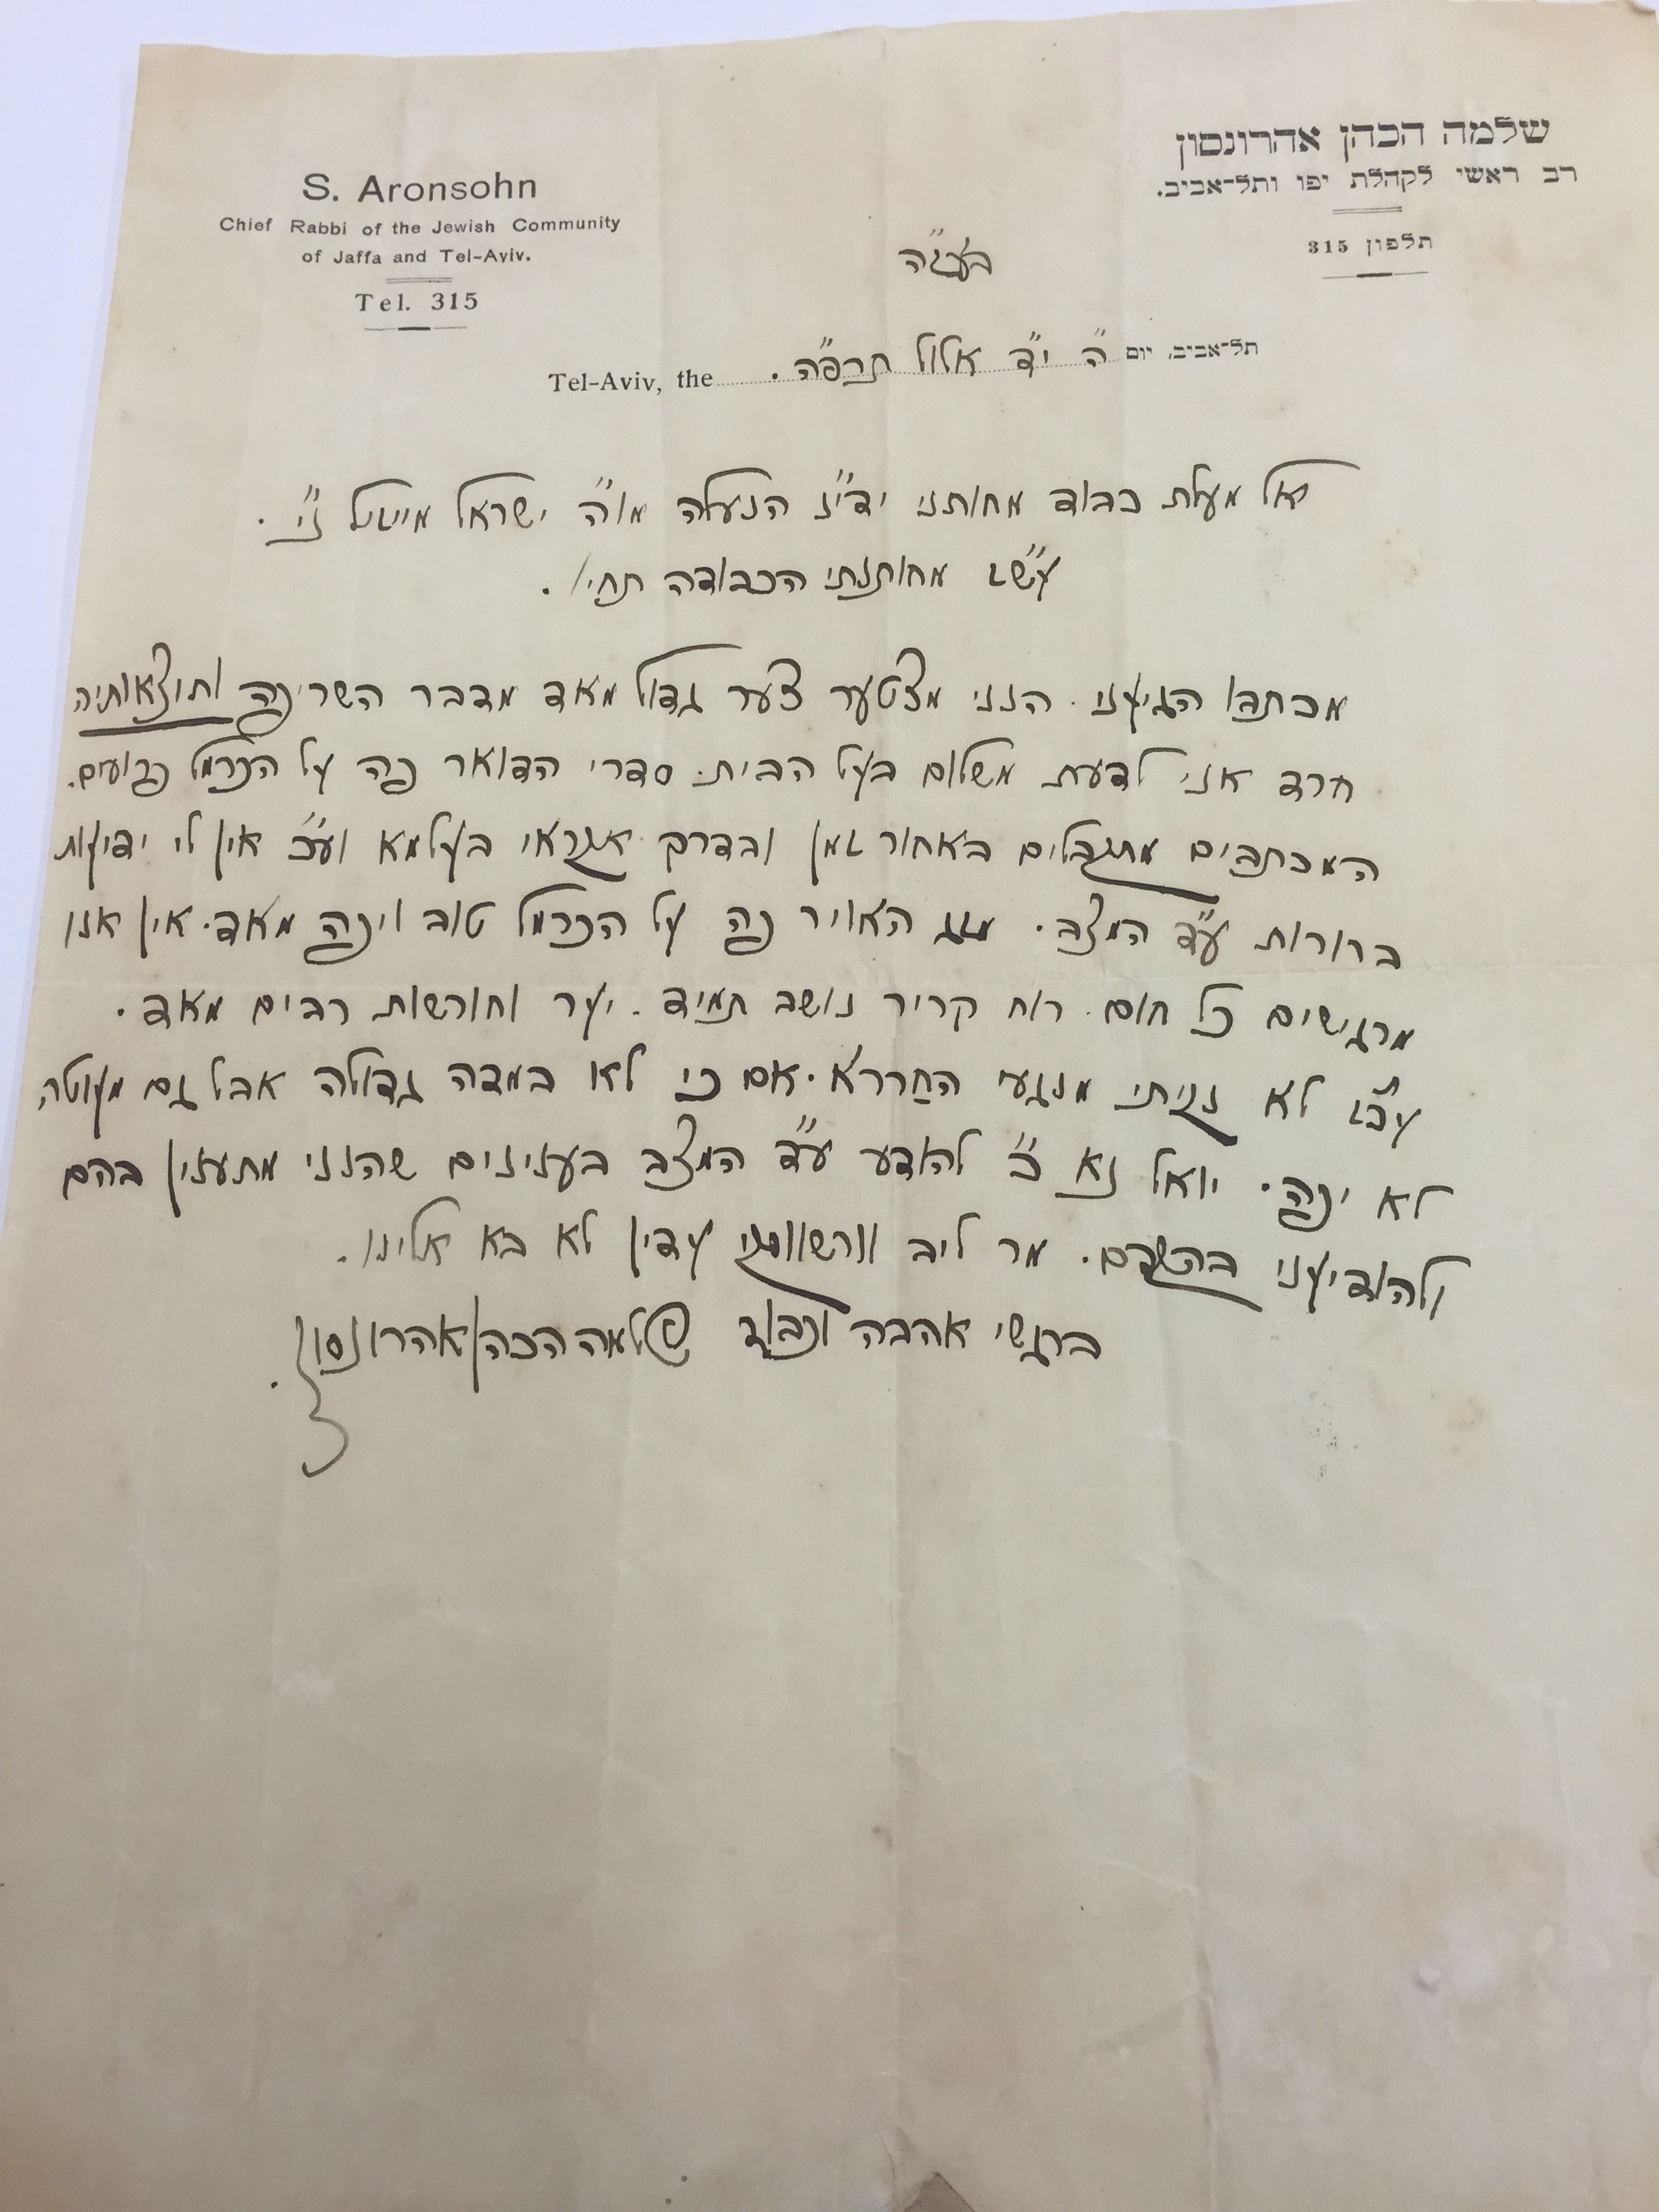 שלמה הכהן אהרונסון
רב ראשי לקהלת יפו ותל־אביב.
תלפון 315
S. Aronsohn
Chief Rabbi of the Jewish Community
of Jaffa and Tel-Aviv.
Tel. 315
בעז"ה
תל־אביב, יום ה' י"ד אלול תרפ"ה.
Tel-Aviv, the
אל מעלת כבוד מחותני ידי"נ הנעלה מו"ה ישראל מיטיל נ"י.
עש"ג מחותנתי הכבודה תחי'.
מכתבו הגיעני. הנני מצטער צער גדול מאד מדבר השריפה ותוצאותיה
חרד אני לדעת משלום בעל הבית. סדרי הדואר פה על הכרמל גרועים.
המכתבים מתקבלים באחור זמן ובדרך אקראי בעלמא וע"כ אין לי ידיעות
ברורות ע"ד המצב. מזג האויר פה על הכרמל טוב ויפה מאד. אין אנו
מרגישים כל חום. רוח קריר נושב תמיד. יער וחורשות רבים מאד.
עכ"ז לא נקיתי מנגעי החררא. אם כי לא במדה גדולה אבל גם מעוטה
לא יפה. יואל נא כ' להודע ע"ד המצב בענינים שהנני מתענין בהם
ולהודיעני בהקדם. מר ליב וורשווסקי עדין לא בא אלינו.
ברגשי אהבה וכבוד שלמה הכהן אהרונסון.